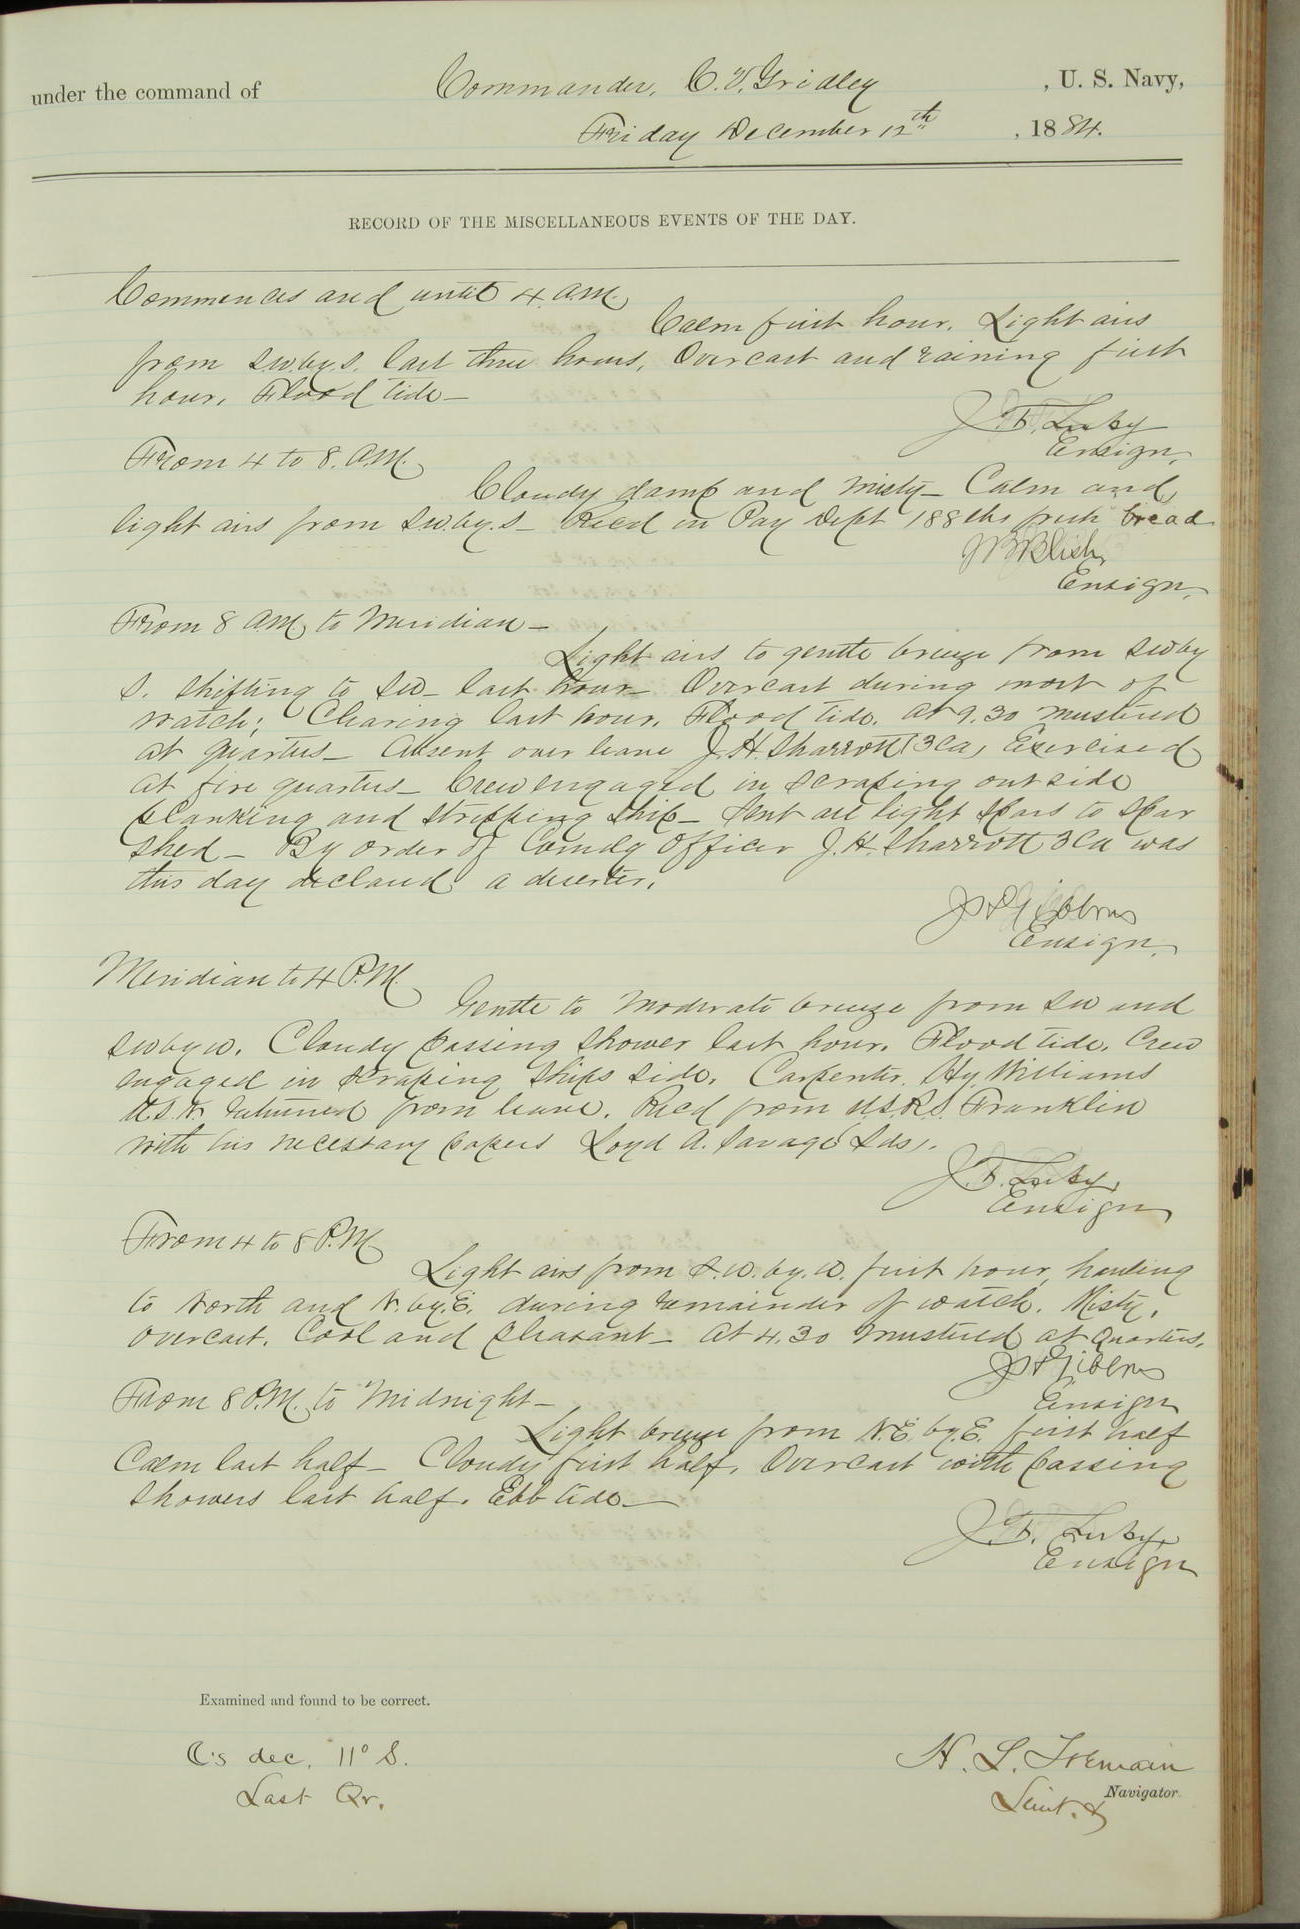 under the command of Commander, C. V. Gridley , U. S. Navy,
Friday December 12th , 1884.
RECORD OF THE MISCELLANEOUS EVENTS OF THE DAY.
Commences and until 4. A.M.
Calm first hour. Light airs
from SW.by.S. last three hours. Overcast and raining first
hour. Flood tide—
J. F. Luby
Ensign,
From 4 to 8. A.M.
Cloudy damp and misty— Calm and
light airs from SW.by.S— Recd in Pay Dept 188 lbs fresh bread
J B Blish,
Ensign,
From 8 A.M. to Meridian—
Light airs to gentle breeze from SW by
S. shifting to SW— last hour— Overcast during most of
watch; Clearing last hour. Flood tide. At 9.30 mustered
at quarters— Absent over leave J. H. Sharrott (3Ca) Exercised
at fire quarters— Crew engaged in scraping outside
planking and stripping ship— Sent all light spars to spar
shed— By order of Comdg Officer J. H. Sharrott 3Ca was
this day declared a deserter.
Gibbons
Ensign,
Meridian to 4 P.M.
Gentle to moderate breeze from SW and
SW by W. Cloudy passing shower last hour. Flood tide. Crew
engaged in scraping ships side. Carpenter. Hy Williams
U.S.N. returned from leave. Recd from U.S.R.S. Franklin
with his necessary papers Loyd A. Savage (Lds).
J. F. Luby,
Ensign
From 4 to 8 P.M.
Light airs from S.W. by. W. first hour, hauling
to North and N. by. E. during remainder of watch. Misty,
overcast. Cool and pleasant— At 4.30 mustered at quarters.
Gibbons
Ensign
From 8 P.M. to Midnight—
Light breeze from N.E. by. E. first half
Calm last half— Cloudy first half, Overcast with passing
showers last half. Ebb tide—
J. F. Luby,
Ensign
Examined and found to be correct.
☾'s dec. 11° S.
Last Qr.
H. L. Tremain
Lieut. &
Navigator.